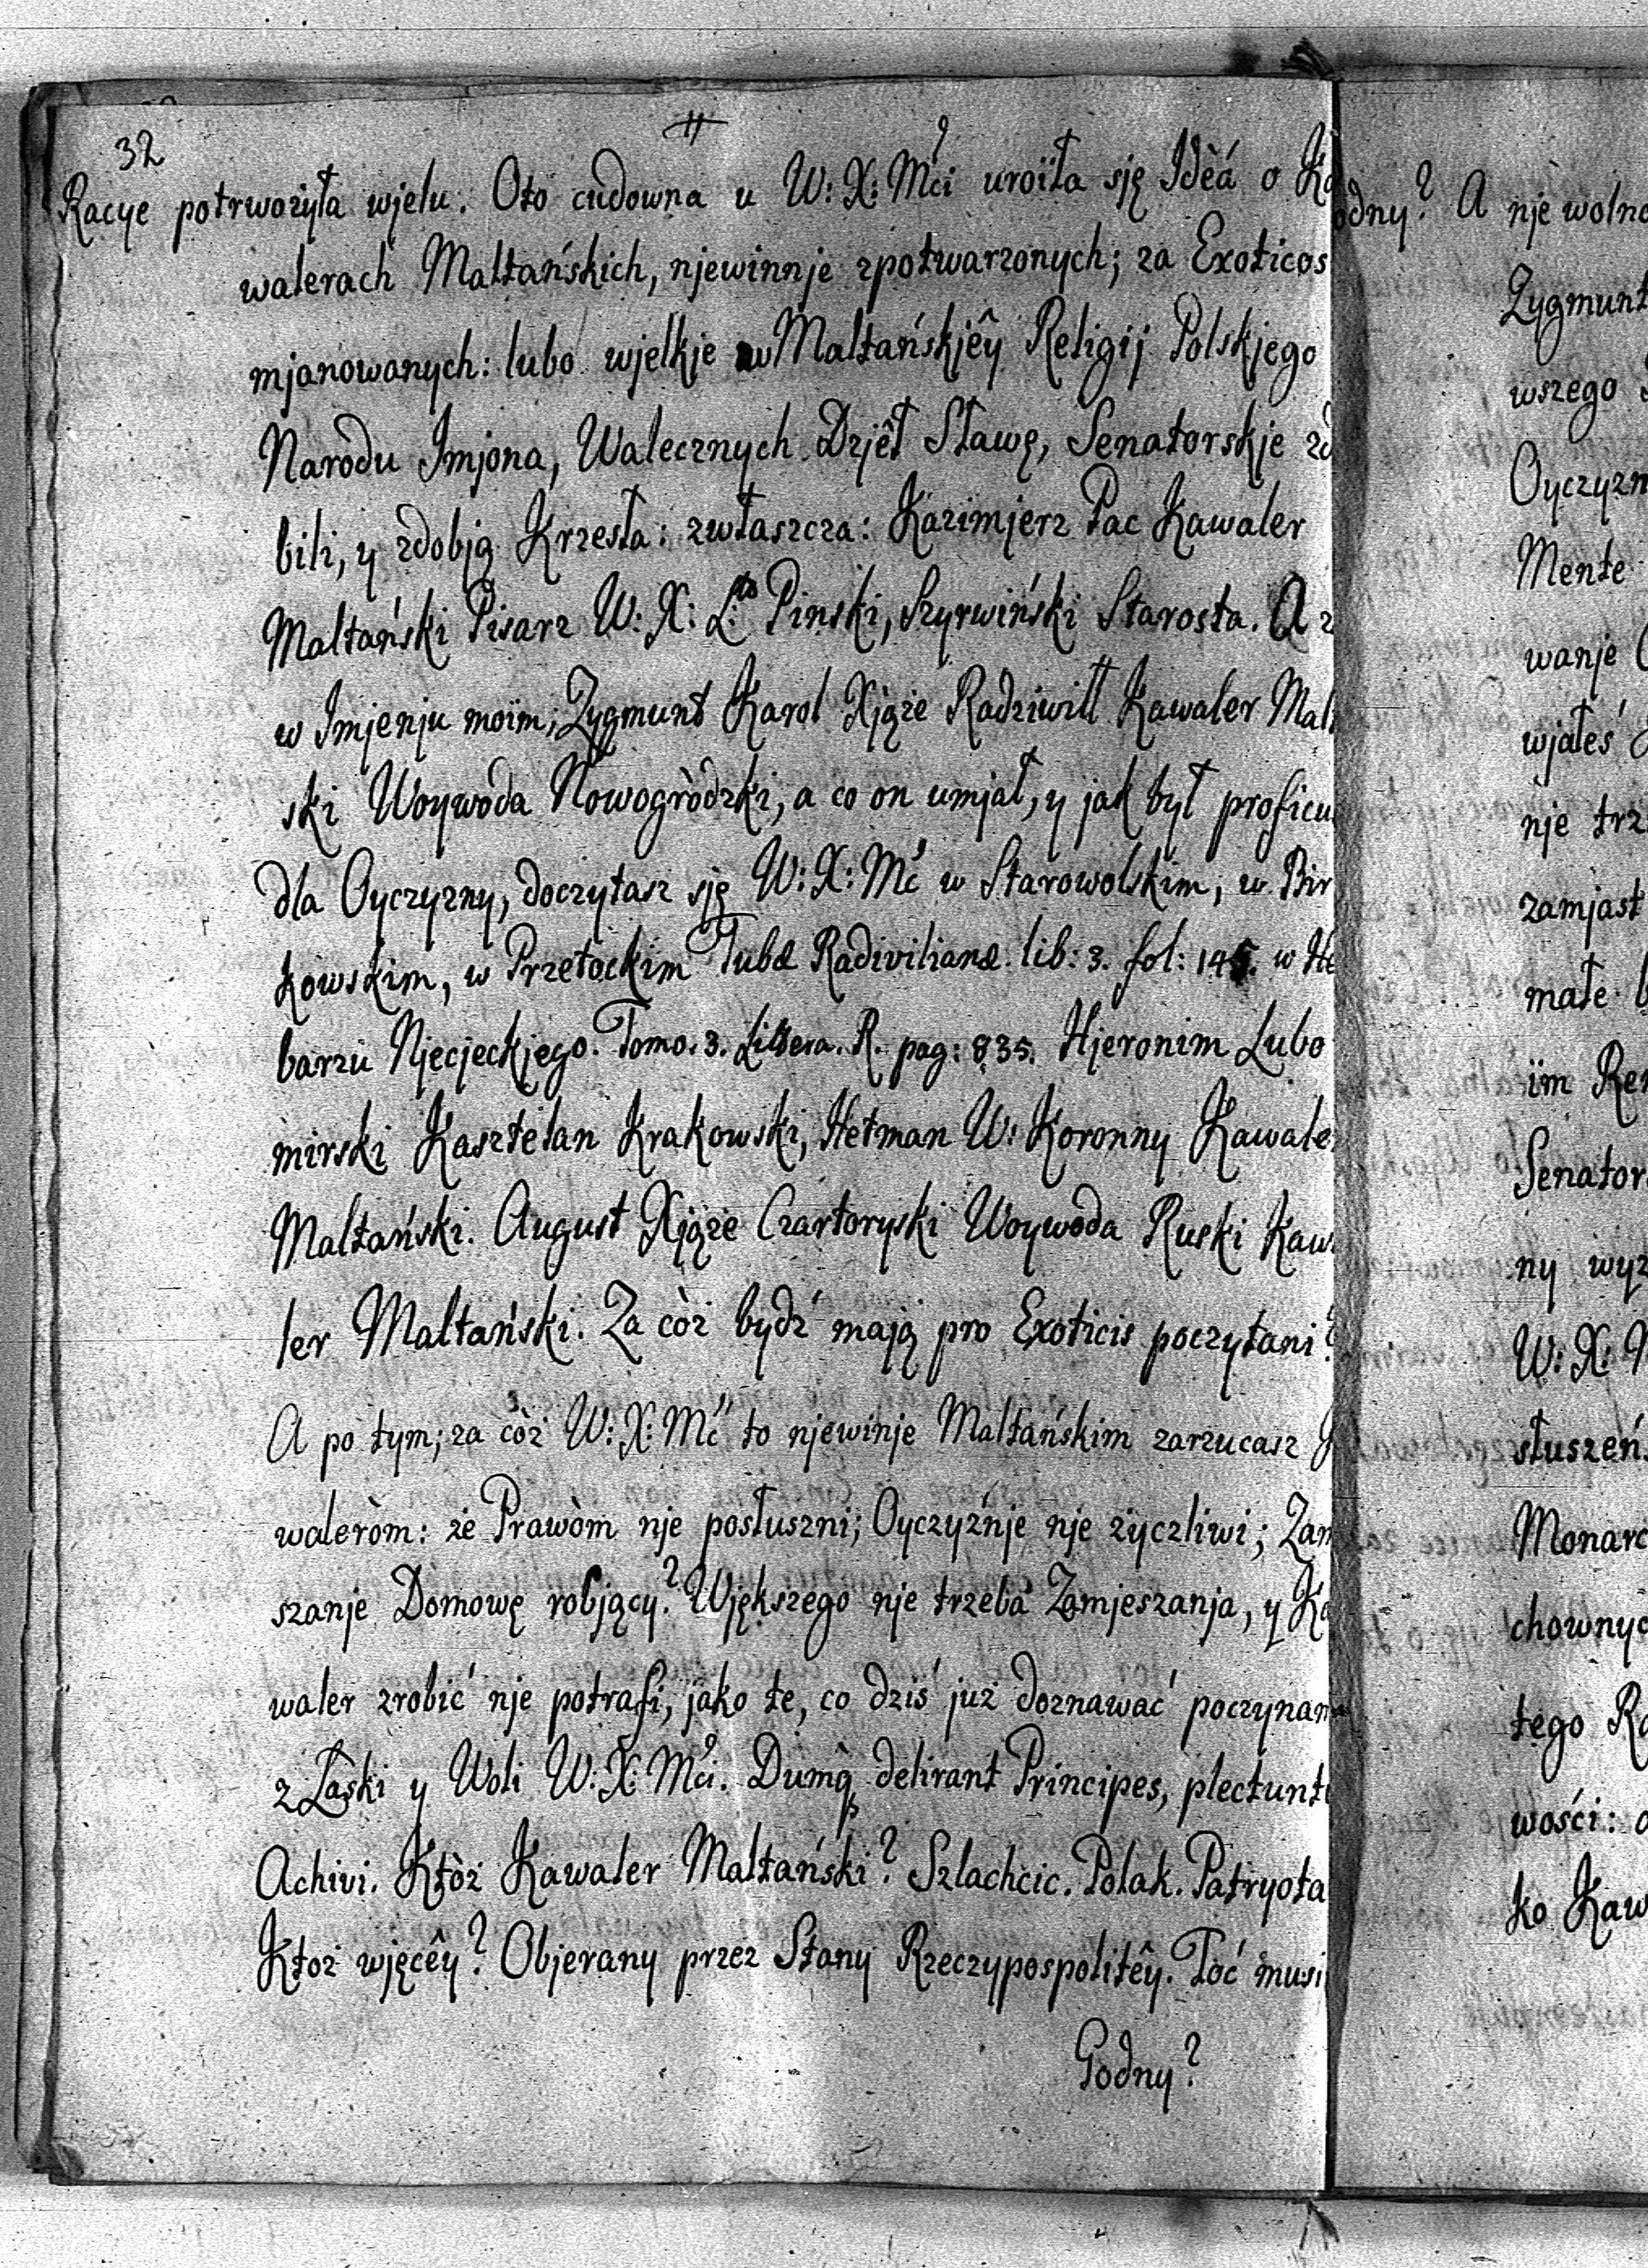 32
Racye potrwożyła wjelu. Oto cudowna u W: X: Mci uroïła sję Idèá o Ka
walerach Maltańskich, njewinnje spotwarzonych; za Exoticos
mjanowanych: lubo wjelkje w Maltańskjêy Religij Polskjego
Narodu Imjona, Walecznych Dzjêł Sławę, Senatorskje zd
bili, y zdobją Krzesła: zwłaszcza: Kazimjerz Pac Kawaler
Maltański Pisarz W: X: L: Pinski, Szyrwiński Starosta. A z
w Imjenju moïm; Zygmunt Karol Xjąże Radziwiłł Kawaler Mal
ski Woywoda Nowogròdzki, a co on umjał, y jak był proficu
dla Oyczyzny, doczytasz sję W: X: Mć w Starowolskim, w Bir
kowskim, w Przełockim Tubæ Radivilianæ. lib: 3. fol: 145. w He
barzu Njecjeckjego. Tomo. 3. Littera. R. pag: 835. Hjeronim Lubo
mirski Kasztelan Krakowski, Hetman W: Koronny Kawale
Maltański. August Xjąże Czartoryski Woywoda Ruski Kaw
ler Maltański. Za còż bydź mają pro Exoticis poczytani?
A po tym; za còż W: X: Mć to njewinje Maltańskim zarzucasz
waleròm: że Prawòm nje posłuszni; Oyczyźnje nje życzliwi; Zam
szanje Domowę robjący? Wjększego nje trzeba Zamjeszanja, y Ka
waler zrobić nje potrafi, jako te, co dziś już doznawać poczynam
z Łaski y Woli W: X: Mci. Dumq delirant Principes, plectunt
Achivi. Któż Kawaler Maltański? Szlachcic. Polak. Patryota
Ktoż wjęcêy? Objerany przez Stany Rzeczypospolitêy. Toć musi
Godny?
odny? A nje wolno
Zygmunt
wszego
Oyczyzn
Mente
wanje
wjałeś
nje trz
zamjast
małe
ïm Re
Senator
ny wyz
W: X: M
słuszeń
Monarc
chownyc
tego Ra
wości:
ko Kaw